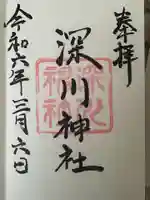 奉拝
深川神社
令和六年三月六日